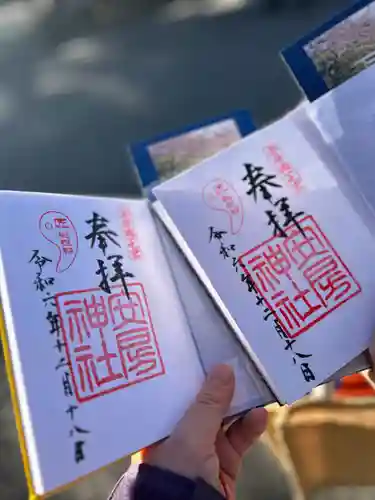 奉拝
安房神社
令和六年十二月十八日
奉拝
安房神社
令和六年十二月十八日